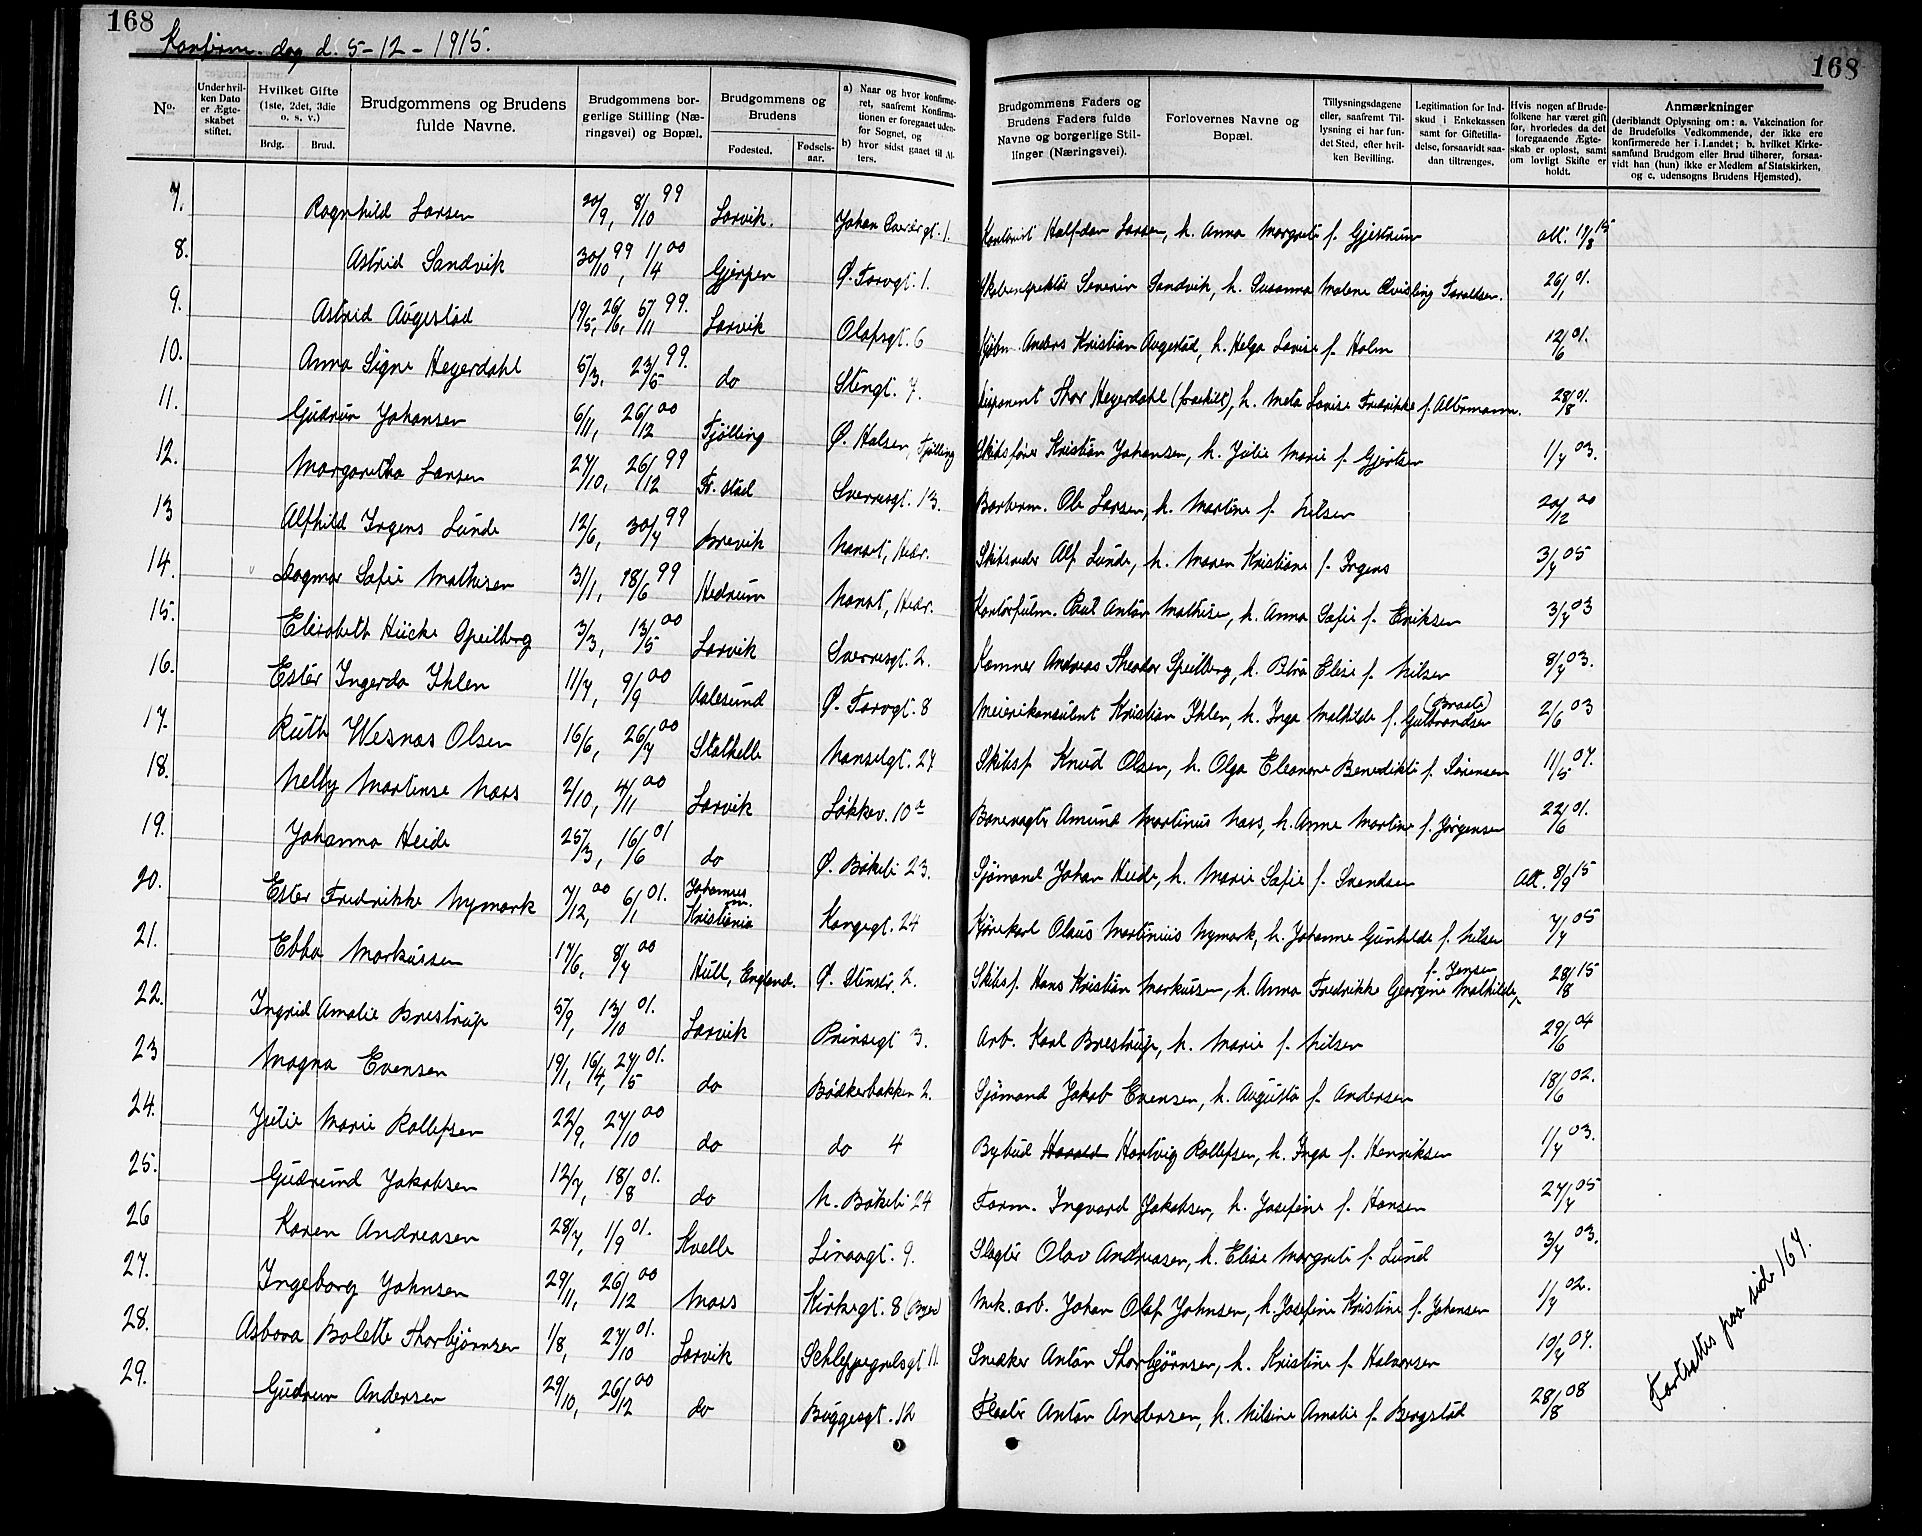 168
168
Konfirm. dag d. 5-12-1915.
No.
Under hvilken Dato er Ægteskabet stiftet.
Hvilket Gifte (1ste, 2det, 3die o. s. v.)
Brdg.
Brud.
Brudgommens og Brudens fulde Navne.
Brudgommens borgerlige Stilling (Næringsvei) og Bopæl.
Brudgommens og Brudens
Fødested.
Fødselsaar.
a) Naar og hvor konfirmeret, saafremt Konfirmationen er foregaaet udenfor Sognet, og
b) hvor sidst gaaet til Alters.
Brudgommens Faders og Brudens Faders fulde Navne og borgerlige Stillinger (Næringsvei).
Forlovernes Navne og Bopæl.
Tillysningsdagene eller, saafremt Tillysning ei har fundet Sted, efter hvilken Bevilling.
Legitimation for Indskud i Enkekassen samt for Giftetilladelse, forsaavidt saadan tiltrænges.
Hvis nogen af Brudefolkene har været gift før, hvorledes da det foregaaende Ægteskab er opløst, samt om lovligt Skifte er holdt.
Anmærkninger
(deriblandt Oplysning om: a. Vakcination for de Brudefolks Vedkommende, der ikke ere konfirmerede her i Landet; b. hvilket Kirkesamfund Brudgom eller Brud tilhører, forsaavidt han (hun) ikke er Medlem af Statskirken, og c. udensogns Brudens Hjemsted).
7. Ragnhild Larsen 20/9, 8/10 99 Larvik. Johan Sverdrgt. 1. Kontorist Halfdan Larsen, h. Anna Margrete f. Gjestrum att. 17/8 15
8. Astrid Sandvik 30/10 99, 11/4 00 Gjerpen Ø. Torvgt. 1. Skoleinspektør Severin Sandvik, h. Susanna Malene Qvisling Taraldsen. 26/1 01.
9. Astrid Augestad 19/5, 26/6, 5/11 99. Larvik Olafsgt. 6 Kjøbm. Anders Kristian Augestad, h. Helga Lovise f. Holm 12/6 01.
10. Anna Signe Heyerdahl 5/3, 23/5 99. do Stengt. 7. Disponent Thor Heyerdahl (fraskilt), h. Meta Lovise Fredrikke f. Altermann. 28/8 01.
11. Gudrun Johansen 6/11, 26/12 00 Tjølling Ø. Halsen, Tjølling Skibsfører Kristian Johansen, h. Julie Marie f. Gjertsen 1/7 03.
12. Margaretha Larsen 27/10, 26/12 99 Fr. stad Sverresgt. 13. Barberm. Ole Larsen, h. Martine f. Nilsen 20/12 00
13 Alfhild Irgens Lunde 12/6, 30/7 99 Brevik Nanset, Hedr. Skibsreder Alf Lunde, h. Maren Kristiane f. Irgens 3/7 05
14. Dagmar Sofie Mathisen 31/1, 18/6 99 Hedrum Nanset, Hedr. Kontorfulm. Paul Anton Mathisen, h. Anna Sofie f. Eriksen 3/7 03
15. Elisabeth Hücke Speilberg 3/3, 13/5 00 Larvik Sverresgt. 2. Kemner Andreas Theodor Speilberg, h. Petra Elise f. Nilsen 8/7 03.
16. Ester Ingerda Ihlen 11/7, 9/9 00 Aalesund Ø. Torvgt. 8 Meierikonsulent Kristian Ihlen, h. Inga Mathilde f. Gulbrandsen (Braate) 2/6 03
17. Ruth Wesnas Olsen 16/6, 26/7 00 Stathelle Nansetgt. 27 Skibsf. Knud Olsen, h. Olga Eleonore Benedikte f. Sørensen 11/5 07.
18. Nelly Martinse Næss 2/10, 4/11 00 Larvik Løkkev. 10a Banevagter Amund Martinius Næss, h. Anne Martine f. Jørgensen 22/6 01.
19. Johanna Heide 25/3, 16/6 01 do Ø. Bøkeli 23. Sjømand Johan Heide, h. Marie Sofie f. Svendsen Att. 8/9 15
20. Ester Fredrikke Nymark 7/12, 00 6/1 01. Johannes m. Kristiania Kongegt. 24 Kjørekarl Olaus Martinius Nymark, h. Johanne Gunhilde f. Nilsen 7/7 05
21. Ebba Markussen 17/6, 8/7 00 Hull, England. Ø. Stenstr. 2. Skibsf. Hans Kristian Markussen, h. Anna Fredrikke Georgine Mathilde, f. Jensen 28/8 15
22. Ingrid Amalie Brestrup 5/9, 13/10 01. Larvik Prinsegt 3. Arb. Karl Brestrup, h. Marie f. Nilsen 29/6 04
23 Magna Evensen 19/1, 16/4, 27/5 01. do Bødkerbakken 2. Sjømand Jakob Evensen, h. Augusta f. Andersen 18/6 02.
24. Julie Marie Rollefsen 22/9, 27/10 00 do do 4 Bybud Harald Hartvig Rollefsen, h. Inga f. Henriksen 1/7 03.
25. Gudrund Jakobsen 12/7, 18/8 01. do N. Bøkeli 24 Form. Ingvard Jakobsen, h. Josefine f. Hansen 27/7 05
26 Karen Andreasen 28/7, 1/9 01. Kvelle Linaagt. 9. Slagter Olav Andreasen, h. Elise Margrete f. Lund 3/7 03.
27. Ingeborg Johnsen 29/11, 26/12 00 Moss Kirkegt. 8 (Byen) Mek. arb. Johan Olaf Johnsen, h. Josefine Kristine f. Johansen 1/7 02.
28. Asbora Bolette Thorbjørnsen 1/8, 27/10 01. Larvik Schleppegrelsgt 11. Snedker Anton Thorbjørnsen, h. Kristine f. Halvorsen 10/7 07.
29. Gudrun Andersen 29/10, 26/12 00 do Buggesgt. 12 Fløter Anton Andersen, h. Nilsine Amalie f. Bergstad 28/8 08
Fortsættes paa side 167.